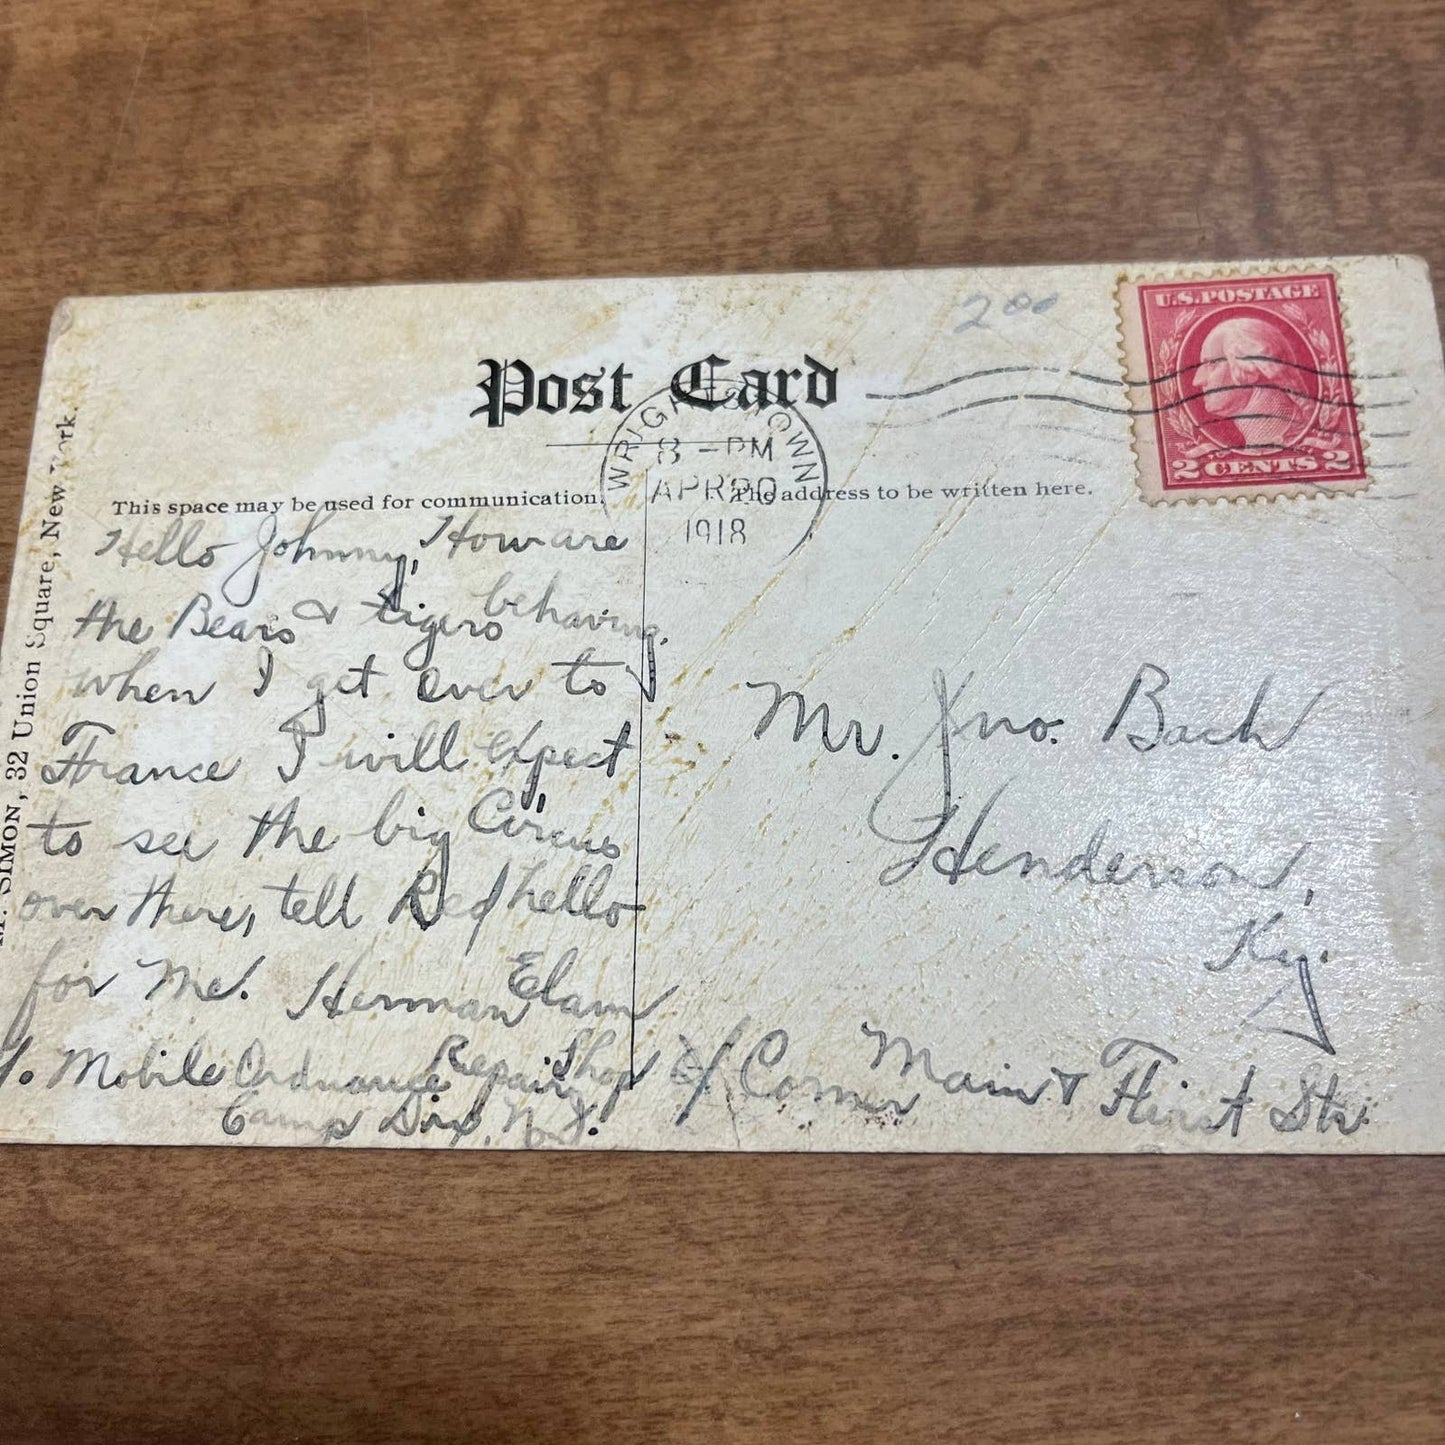 200
U.S. POSTAGE
2 CENTS 2
Post Card
WRIGHTSTOWN
8 - PM
APR 20
1918
This space may be used for communication.
The address to be written here.
SIMON, 32 Union Square, New York.
Hello Johnny, How are
the Bears & tigers behaving.
when I get over to
France I will expect
to see the big Circus
over there, tell Red hello
for Me. Herman Elam
Mobile Ordnance Repair Shop
Camp Dix, N. J.
Mr. Jno. Bach
Henderson,
Ky.
% Corner Main & First Str.